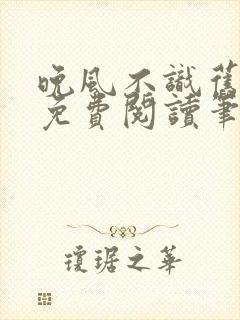 晚風不識舊
免費閱讀筆
瓊琚之華